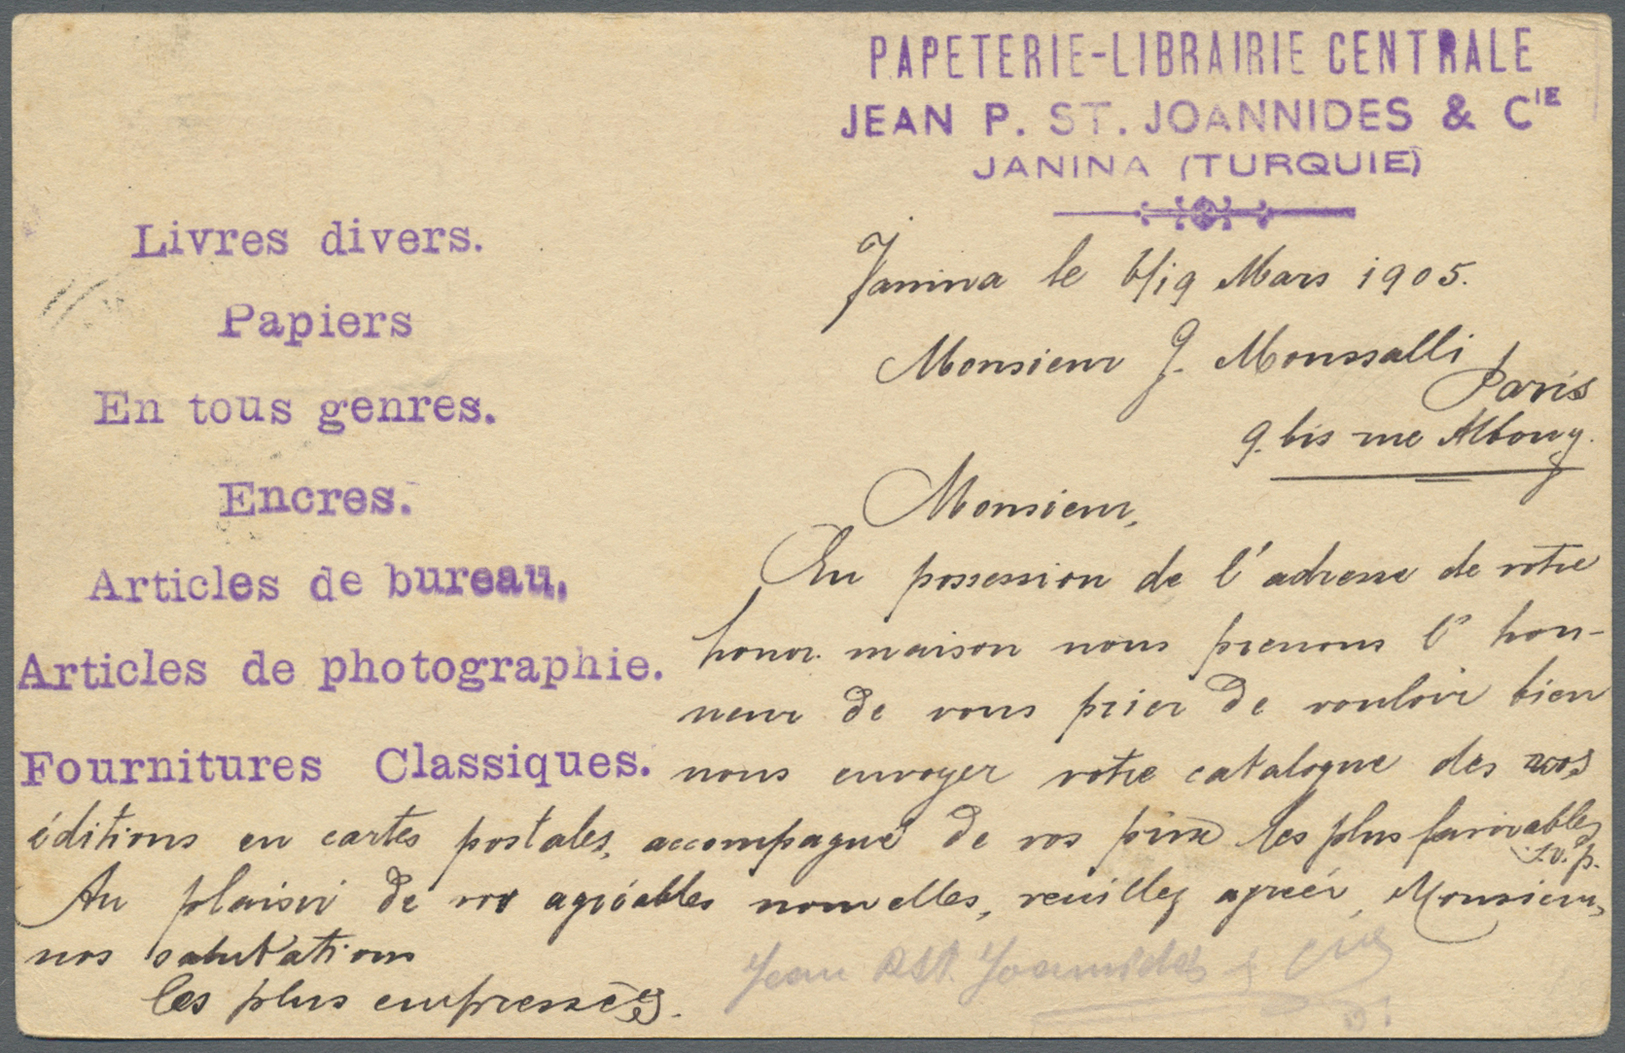 PAPETERIE-LIBRAIRIE CENTRALE
JEAN P. ST. JOANNIDES & CIE
JANINA (TURQUIE)
Livres divers.
Papiers
En tous genres.
Encres.
Articles de bureau.
Articles de photographie.
Fournitures Classiques.
Janina le 6/19 Mars 1905.
Monsieur J. Moussalli
Paris
9. bis rue Albouy.
Monsieur,
En possession de l'adresse de votre
honor. maison nous prenons l'hon-
neur de vous prier de vouloir bien
nous envoyer votre catalogue des vos
éditions en cartes postales, accompagné de vos prix les plus favorables
s.v.p.
Au plaisir de vos agréables nouvelles, veuillez agréer, Monsieur,
nos salutations
les plus empressées.
Jean P. St. Joannides & Cie